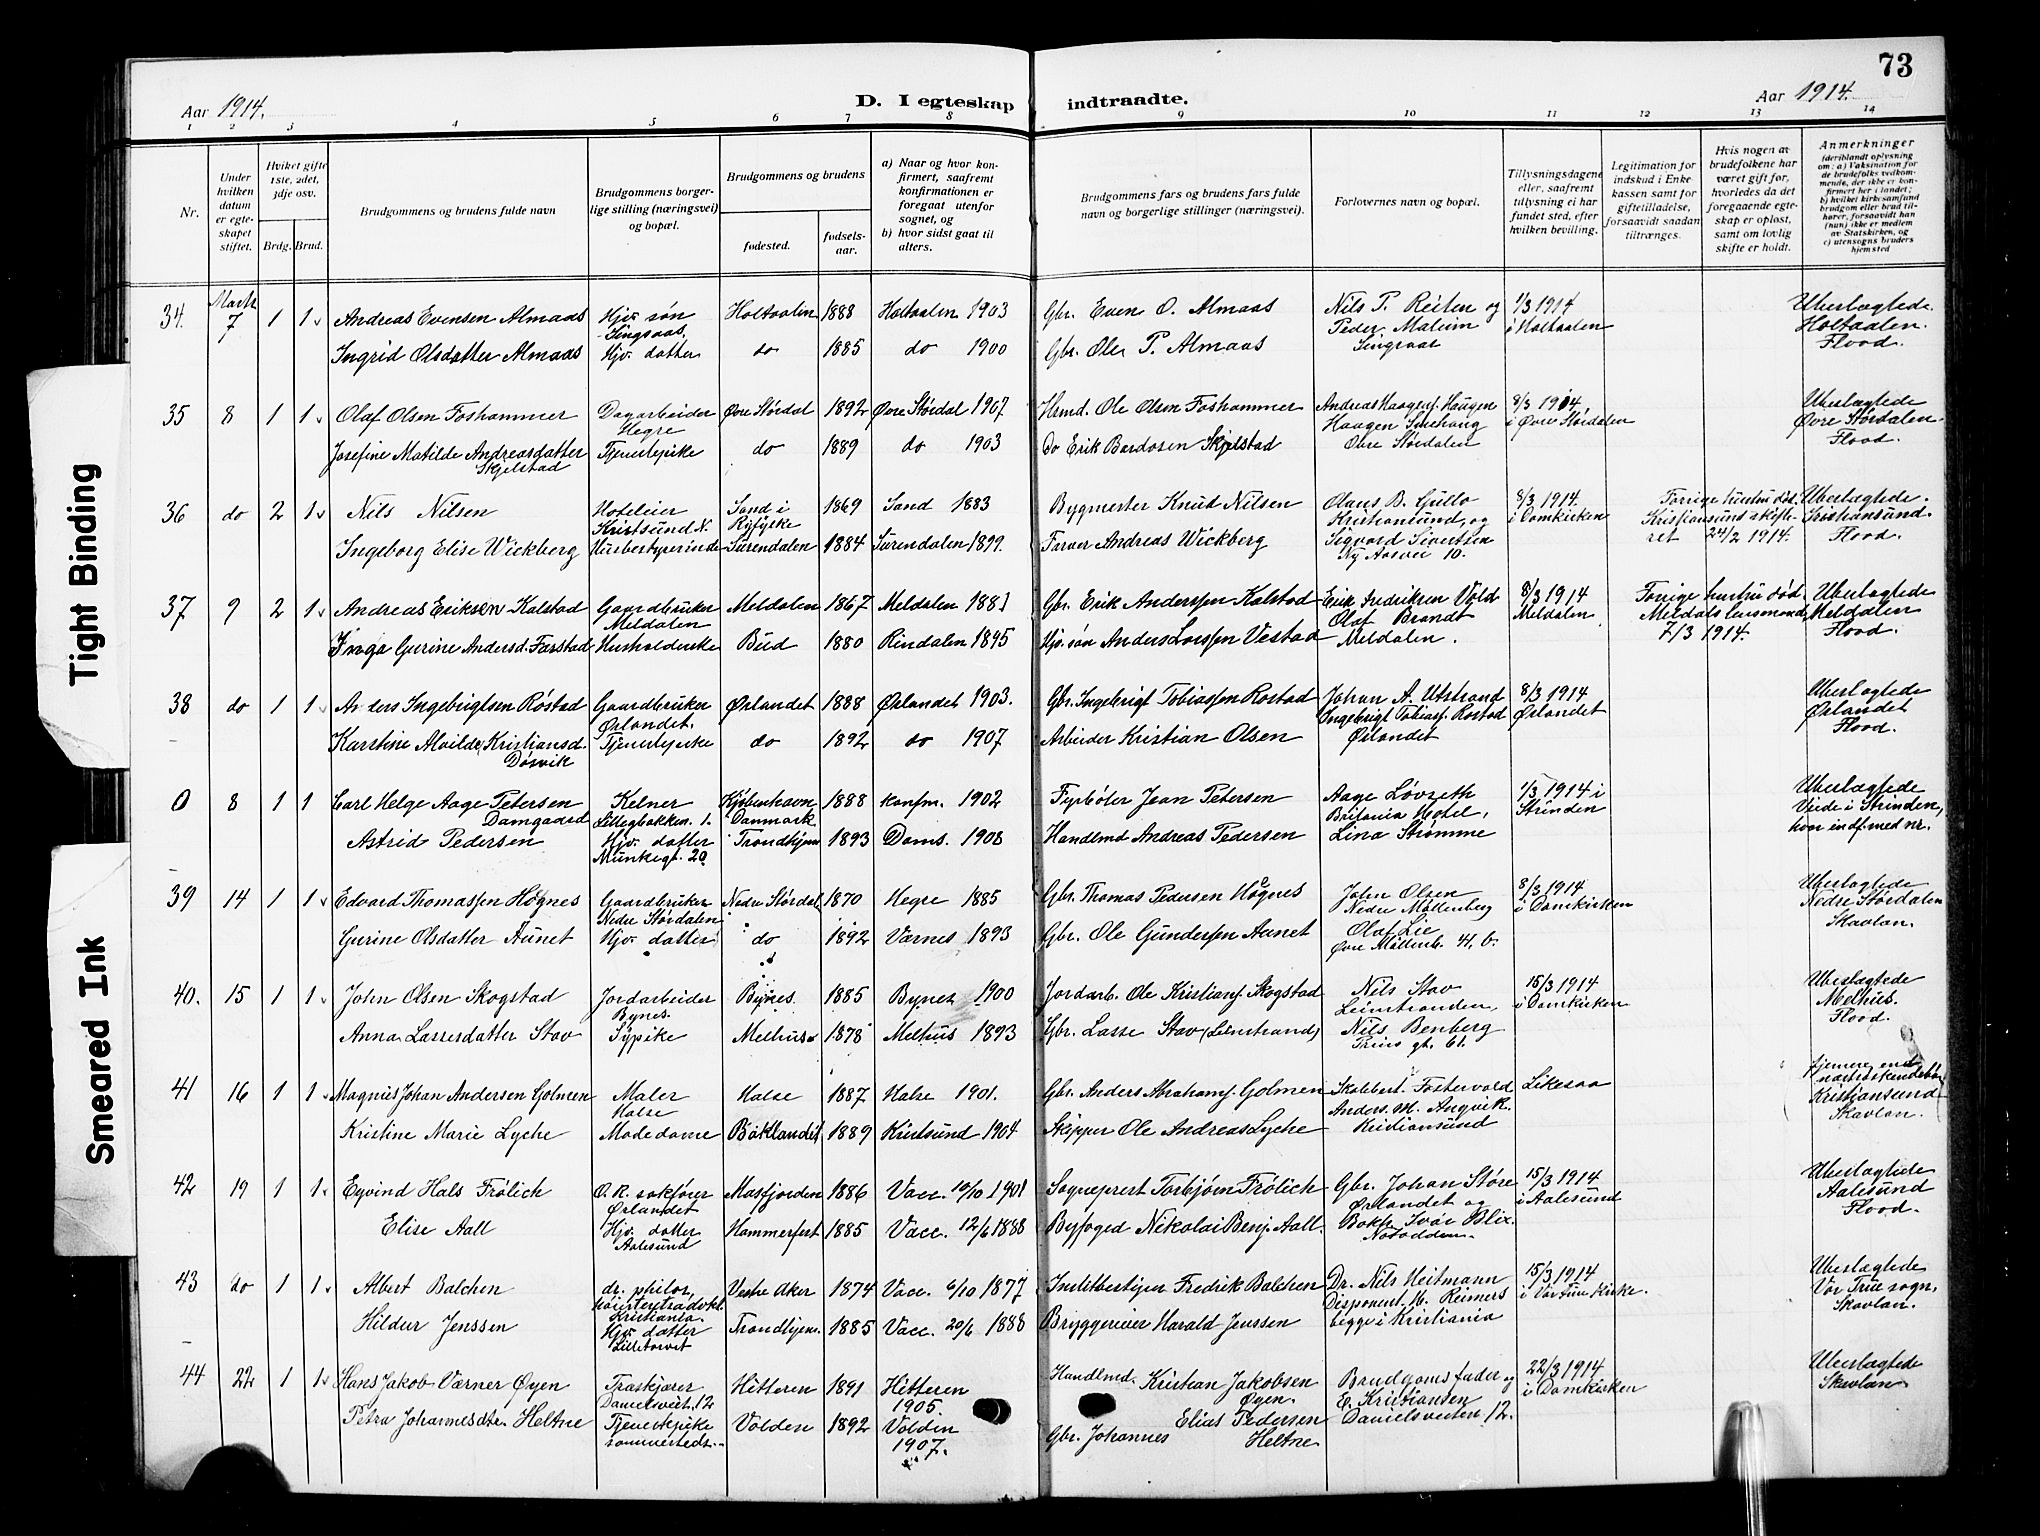 73
Aar 1914.
D. I egteskap indtraadte.
Aar 1914.
1 2 3 4 5 6 7 8 9 10 11 12 13 14
Nr.
Under hvilken datum er egteskapet stiftet.
Hvilket gifte 1ste, 2det, 3dje osv.
Brdg. Brud.
Brudgommens og brudens fulde navn
Brudgommens borgerlige stilling (næringsvei) og bopæl.
Brudgommens og brudens
fødested. fødselsaar.
a) Naar og hvor konfirmert, saafremt konfirmationen er foregaat utenfor sognet, og
b) hvor sidst gaat til alters.
Brudgommens fars og brudens fars fulde navn og borgerlige stillinger (næringsvei).
Forlovernes navn og bopæl.
Tillysningsdagene eller, saafremt tillysning ei har fundet sted, efter hvilken bevilling.
Legitimation for indskud i Enkekassen samt for giftetilladelse, forsaavidt saadan tiltrænges.
Hvis nogen av brudefolkene har været gift før, hvorledes da det foregaaende egteskap er opløst, samt om lovlig skifte er holdt.
Anmerkninger
(deriblandt oplysning om: a) Vaksination for de brudefolks vedkommende, der ikke er konfirmert her i landet; b) hvilket kirkesamfund brudgom eller brud tilhører, forsaavidt han (hun) ikke er medlem av Statskirken, og c) utensogns bruders hjemsted
34. Marts 7 1 1 Andreas Evensen Almaas Gbr. søn Singsaas Holtaalen 1888 Holtaalen 1903 Gbr. Even O. Almaas Nils P. Reiten og Peder Malum Singsaas 1/3 1914 i Holtaalen Ubeslægtede. Holtaalen. Flood.
Ingrid Olsdatter Almaas Hjv. datter do 1885 do 1900 Gbr. Ole P. Almaas
35 8 1 1 Olaf Olsen Foshammer Dagarbeider Hegre Øvre Stördal 1892 Øvre Stördal 1907 Hsmd. Ole Olsen Foshammer Andreas Haagens. Haugen Haagen Øvre Stördalen 8/3 1914 i Øvre Stördalen Ubeslægtede Øvre Stördalen. Flood.
Josefine Matilde Andreasdatter Skjelstad Tjenestepike do 1889 do 1903 Do Erik Bardosen Skjelstad
36 do 2 1 Nils Nilsen Hoteleier Kristsund N. Sand i Ryfylke 1869 Sand 1883 Bygmester Knud Nilsen Olaus B. Gullo Kristiansund, og Sigvard Sivertsen Ny Aasvei 10. 8/3 1914. i Domkirken Forrige hustru död. Kristiansund skifteret 24/2 1914. Ubeslægtede. Kristiansund. Flood.
Ingeborg Elise Wickberg Husbestyrerinde Surendalen 1884 Surendalen 1899. Farver Andreas Wickberg
37 9 2 1 Andreas Eriksen Kalstad Gaardbruker Meldalen Meldalen 1867 Meldalen 1883 Gbr. Erik Anderssen Kalstad Erik Fredriksen Vold Olaf Brandt Meldalen. 8/3 1914 Meldalen Forrige hustru död Meldals lensmand 7/3 1914. Ubeslægtede Meldalen Flood.
Inga Gurine Andersd. Farstad Husholderske Bud 1880 Rindalen 1895 Hjv. søn Anders Larssen Vestad
38 do 1 1 Anders Ingebrigtsen Röstad Gaardbruker Ørlandet. Ørlandet 1888 Ørlandet 1903. Gbr. Ingebrigt Tobiassen Rostad Johan A. Utstrand Ingebrigt Tobias. Rostad Ørlandet 8/3 1914 Ørlandet Ubeslægtede Ørlandet Flood.
Karstine Alvilde Kristiansd. Dösvik Tjenestepike do 1892 do 1907 Arbeider Kristian Olsen
0 8 1 1 Carl Helge Aage Petersen Damgaard Kelner Lillegbakken. 1. Kjöbenhavn Danmark 1888 konfm. 1902 Fyrböter Jean Petersen Aage Lövseth Britania Hotel, Lina Strömme 1/3 1914 i Strinden Ubeslægtede Viede i Strinden, hvor indf. med nr.
Astrid Pedersen Hjv. datter Munkegt. 20 Trondhjem 1893 Doms. 1908 Handlmd Andreas Pedersen
39 14 1 1 Edvard Thomassen Högnes Gaardbruker Nedre Stördalen Nedre Stördal 1870 Hegre 1885 Gbr. Thomas Pedersen Högnes John Olsen Nedre Möllenberg Olaf Lie Øvre Möllenb. 41. b. 8/3 1914. i Domkirken Ubeslægtede Nedre Stördalen Skavlan.
Gurine Olsdatter Aunet Hjv. datter do 1892 Værnes 1893 Gbr. Ole Gunderssen Aunet
40. 15 1 1 John Olsen Skogstad Jordarbeider Bynes. Bynes. 1885 Bynes 1900 Jordarb. Ole Kristians. Skogstad Nils Stav Leinstranden, Nils Benberg Prins gt. 61. 15/3 1914 i Domkirken Ubeslægtede Melhus. Flood.
Anna Lassesdatter Stav Sypike Melhus 1878 Melhus 1893 Gbr. Lasse Stav (Leinstrand)
41 16 1 1 Magnus Johan Andersen Golmen Maler Halse Halse 1887 Halse 1901. Gbr. Anders Abrahams. Golmen Skolebest. Fostervold Anders. M. Angvik. Kristiansund Likesaa Kristiansund Skavlan.
Kristine Marie Lyche Modedame Baklandet 1889 Kristsund 1904 Skipper Ole Andreas Lyche
42 19 1 1 Eyvind Hals Frölich O. R. sakförer Ørlandet Masfjorden 1886 Vacc. 19/10 1901 Sogneprest Torbjörn Frölich Gbr. Johan Störe Ørlandet og Bokh. Ivar Blix. Notodden. 15/3 1914 i Aalesund Ubeslægtede Aalesund Flood.
Elise Aall Hjv. datter Aalesund Hammerfest 1885 Vacc. 12/6 1888 Byfoged Nikolai Benj. Aall.
43 do 1 1 Albert Balchen dr. philos, höiesteretsadvokat Kristiania. Vestre Aker 1874 Vacc. 6/10 1877 Institbestyrer Fredrik Balchen Dr. Nils Heitmann Disponent. H. Reimers begge i Kristiania 15/3 1914 i Vor Frue Kirke. Ubeslægtede Vor Frue sogn. Skavlan.
Hildur Jenssen Hjv. datter Lilletorvet Trondhjem. 1885 Vacc. 20/6 1888 Bryggerieier Harald Jenssen
44 22 1 1 Hans Jakob Værner Øyen Træskjærer Danielsveit. 12 Hitteren 1891 Hitteren 1905 Handlmd. Kristian Jakobsen Øyen. Brudgoms fader og E. Kristiansen Danielsveiten 12. 22/3 1914 i Domkirken Ubeslægtede Skavlan
Petra Johannesdtr. Heltne Tjenestepike sammesteds. Volden 1892 Volden 1907. Gbr. Johannes Elias Pedersen Heltne
Tight Binding
Smeared Ink